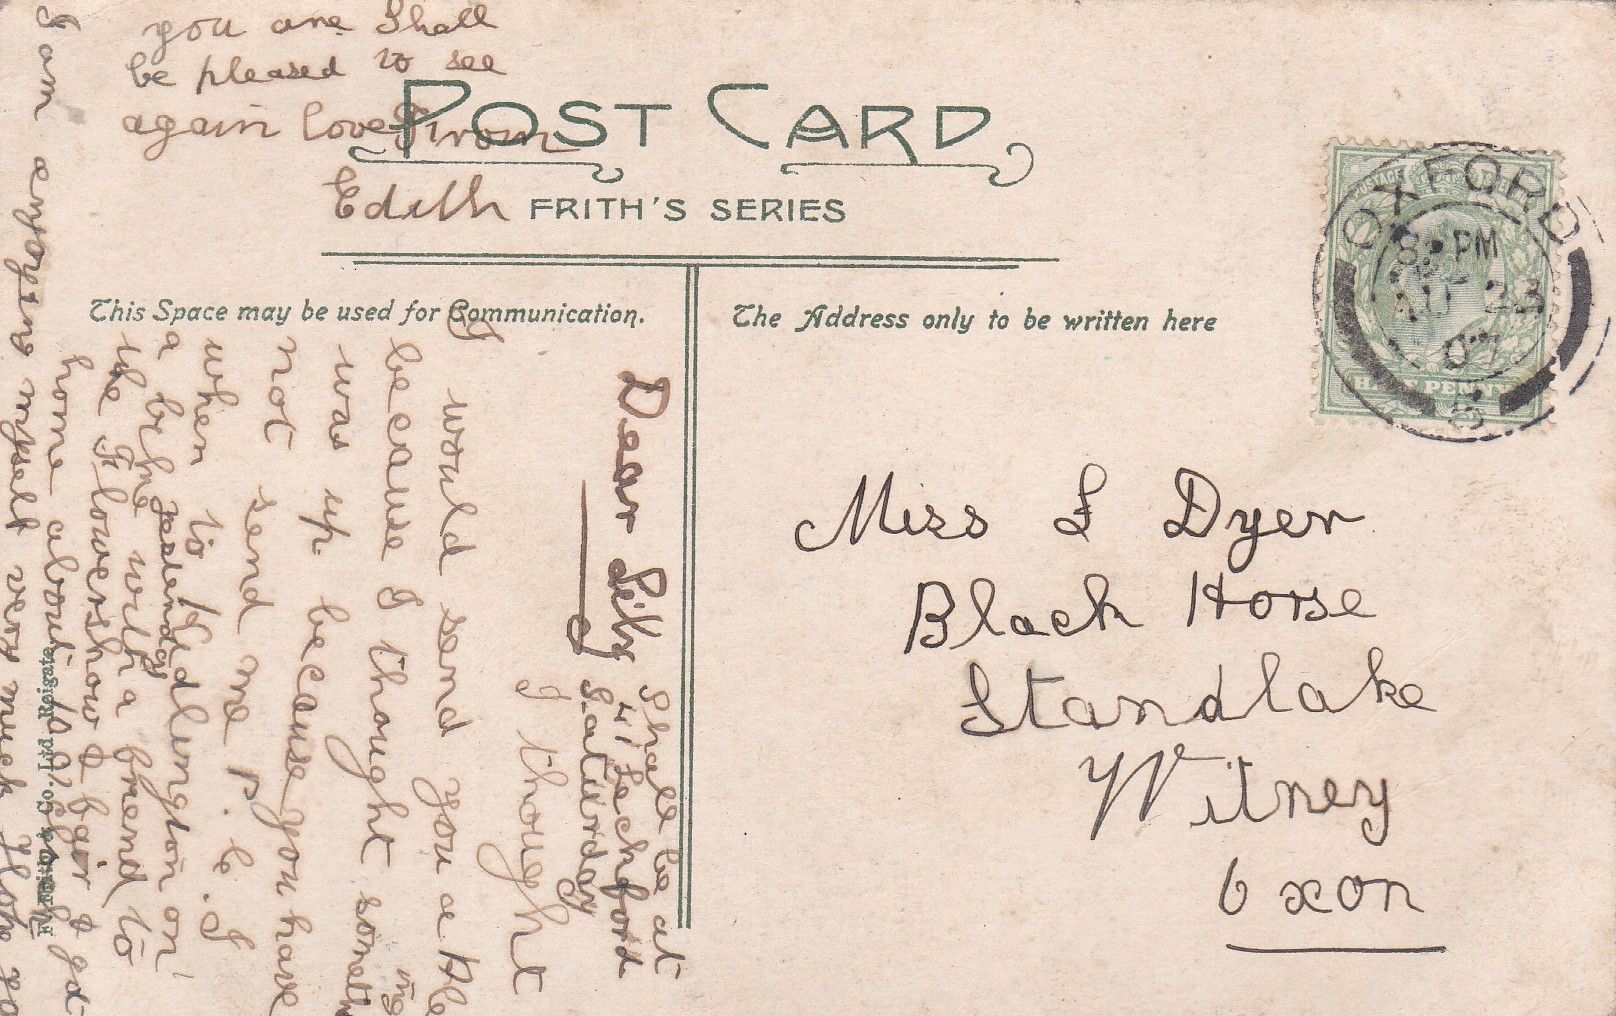 POST CARD
FRITH'S SERIES
This Space may be used for Communication.
The Address only to be written here
OXFORD
8 PM
AU 23
07
HALF PENNY
Miss L Dyer
Black Horse
Standlake
Witney
Oxon
Shall be at
41 Lechford
Saturday
Dear Lily
I thought
I would send you a
because I thought someth
ing
was up because you have
not send me P. C. I
when to Headlington on
a bike with a friend to
the Flowershow & fair &
home about
I am enjoying myself very much Hope
you are Shall
be pleased to see
again love From
Edith
F. Frith & Co., Ltd. Reigate